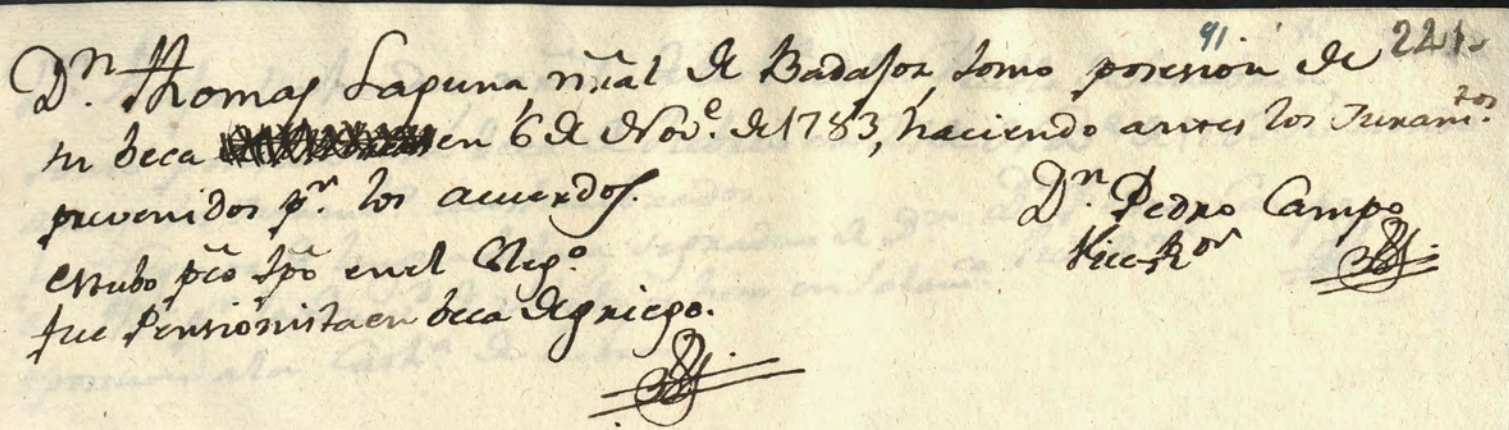 91. 221.
Dn. Thomas Laguna nr̃al de Badajoz, tomo posesion de
su beca en 6 de Nove. de 1783, haciendo antes los Juramtos.
prevenidos pr. los acuerdos.
Dn. Pedro Campo
Vice-Ror
estubo pco tpo en el Colego.
fue Pensionista en beca de griego.